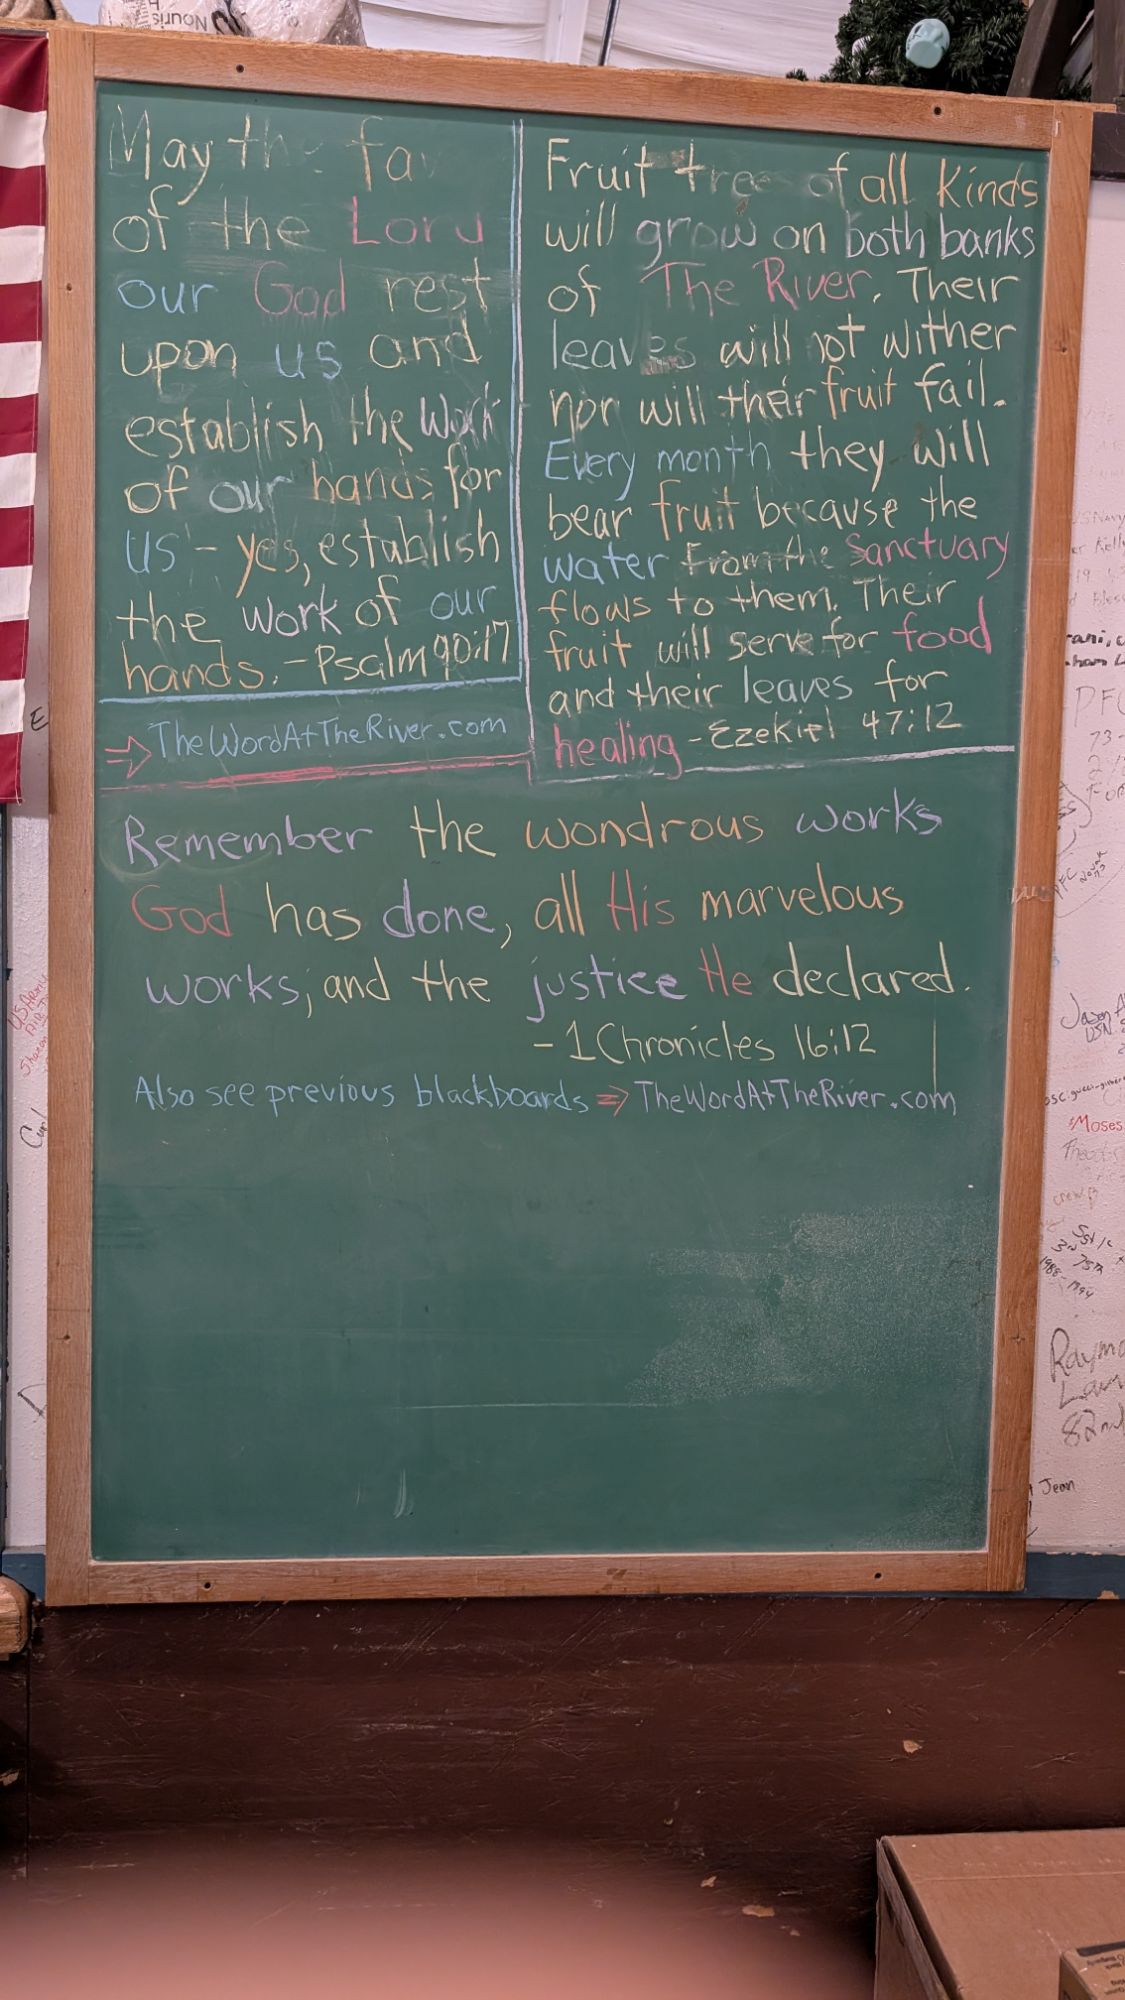 Nouris
May the fa
of the Lord
our God rest
upon us and
establish the work
of our hands for
us - yes, establish
the work of our
hands. - Psalm 90:17
TheWordAtTheRiver.com
Fruit tree of all Kinds
will grow on both banks
of The River. Their
leaves will not wither
nor will their fruit fail.
Every month they will
bear fruit because the
water from the Sanctuary
flows to them. Their
fruit will serve for food
and their leaves for
healing - Ezekiel 47:12
Remember the wondrous works
God has done, all His marvelous
works, and the justice He declared.
- 1 Chronicles 16:12
Also see previous blackboards => TheWordAtTheRiver.com
US Army
PFC
Jason A
USN
Moses
1988-1994
Raymo
82nd
Jean